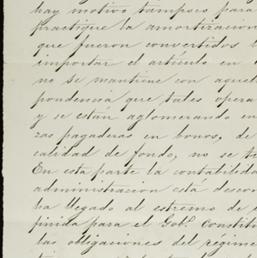 hay motivo tampoco para
practique la amortizacion
que fueron convertidos
importar el artículo en
no se mantiene con aquel
pondencia que tales opera
y se están aglomerando en
zas pagaderas en bonos, de
calidad de fondo, no se
En esta parte la contabilidad
administracion está descon
ha llegado al estremo de
finida para el Gob.º Constitu
las obligaciones del régime